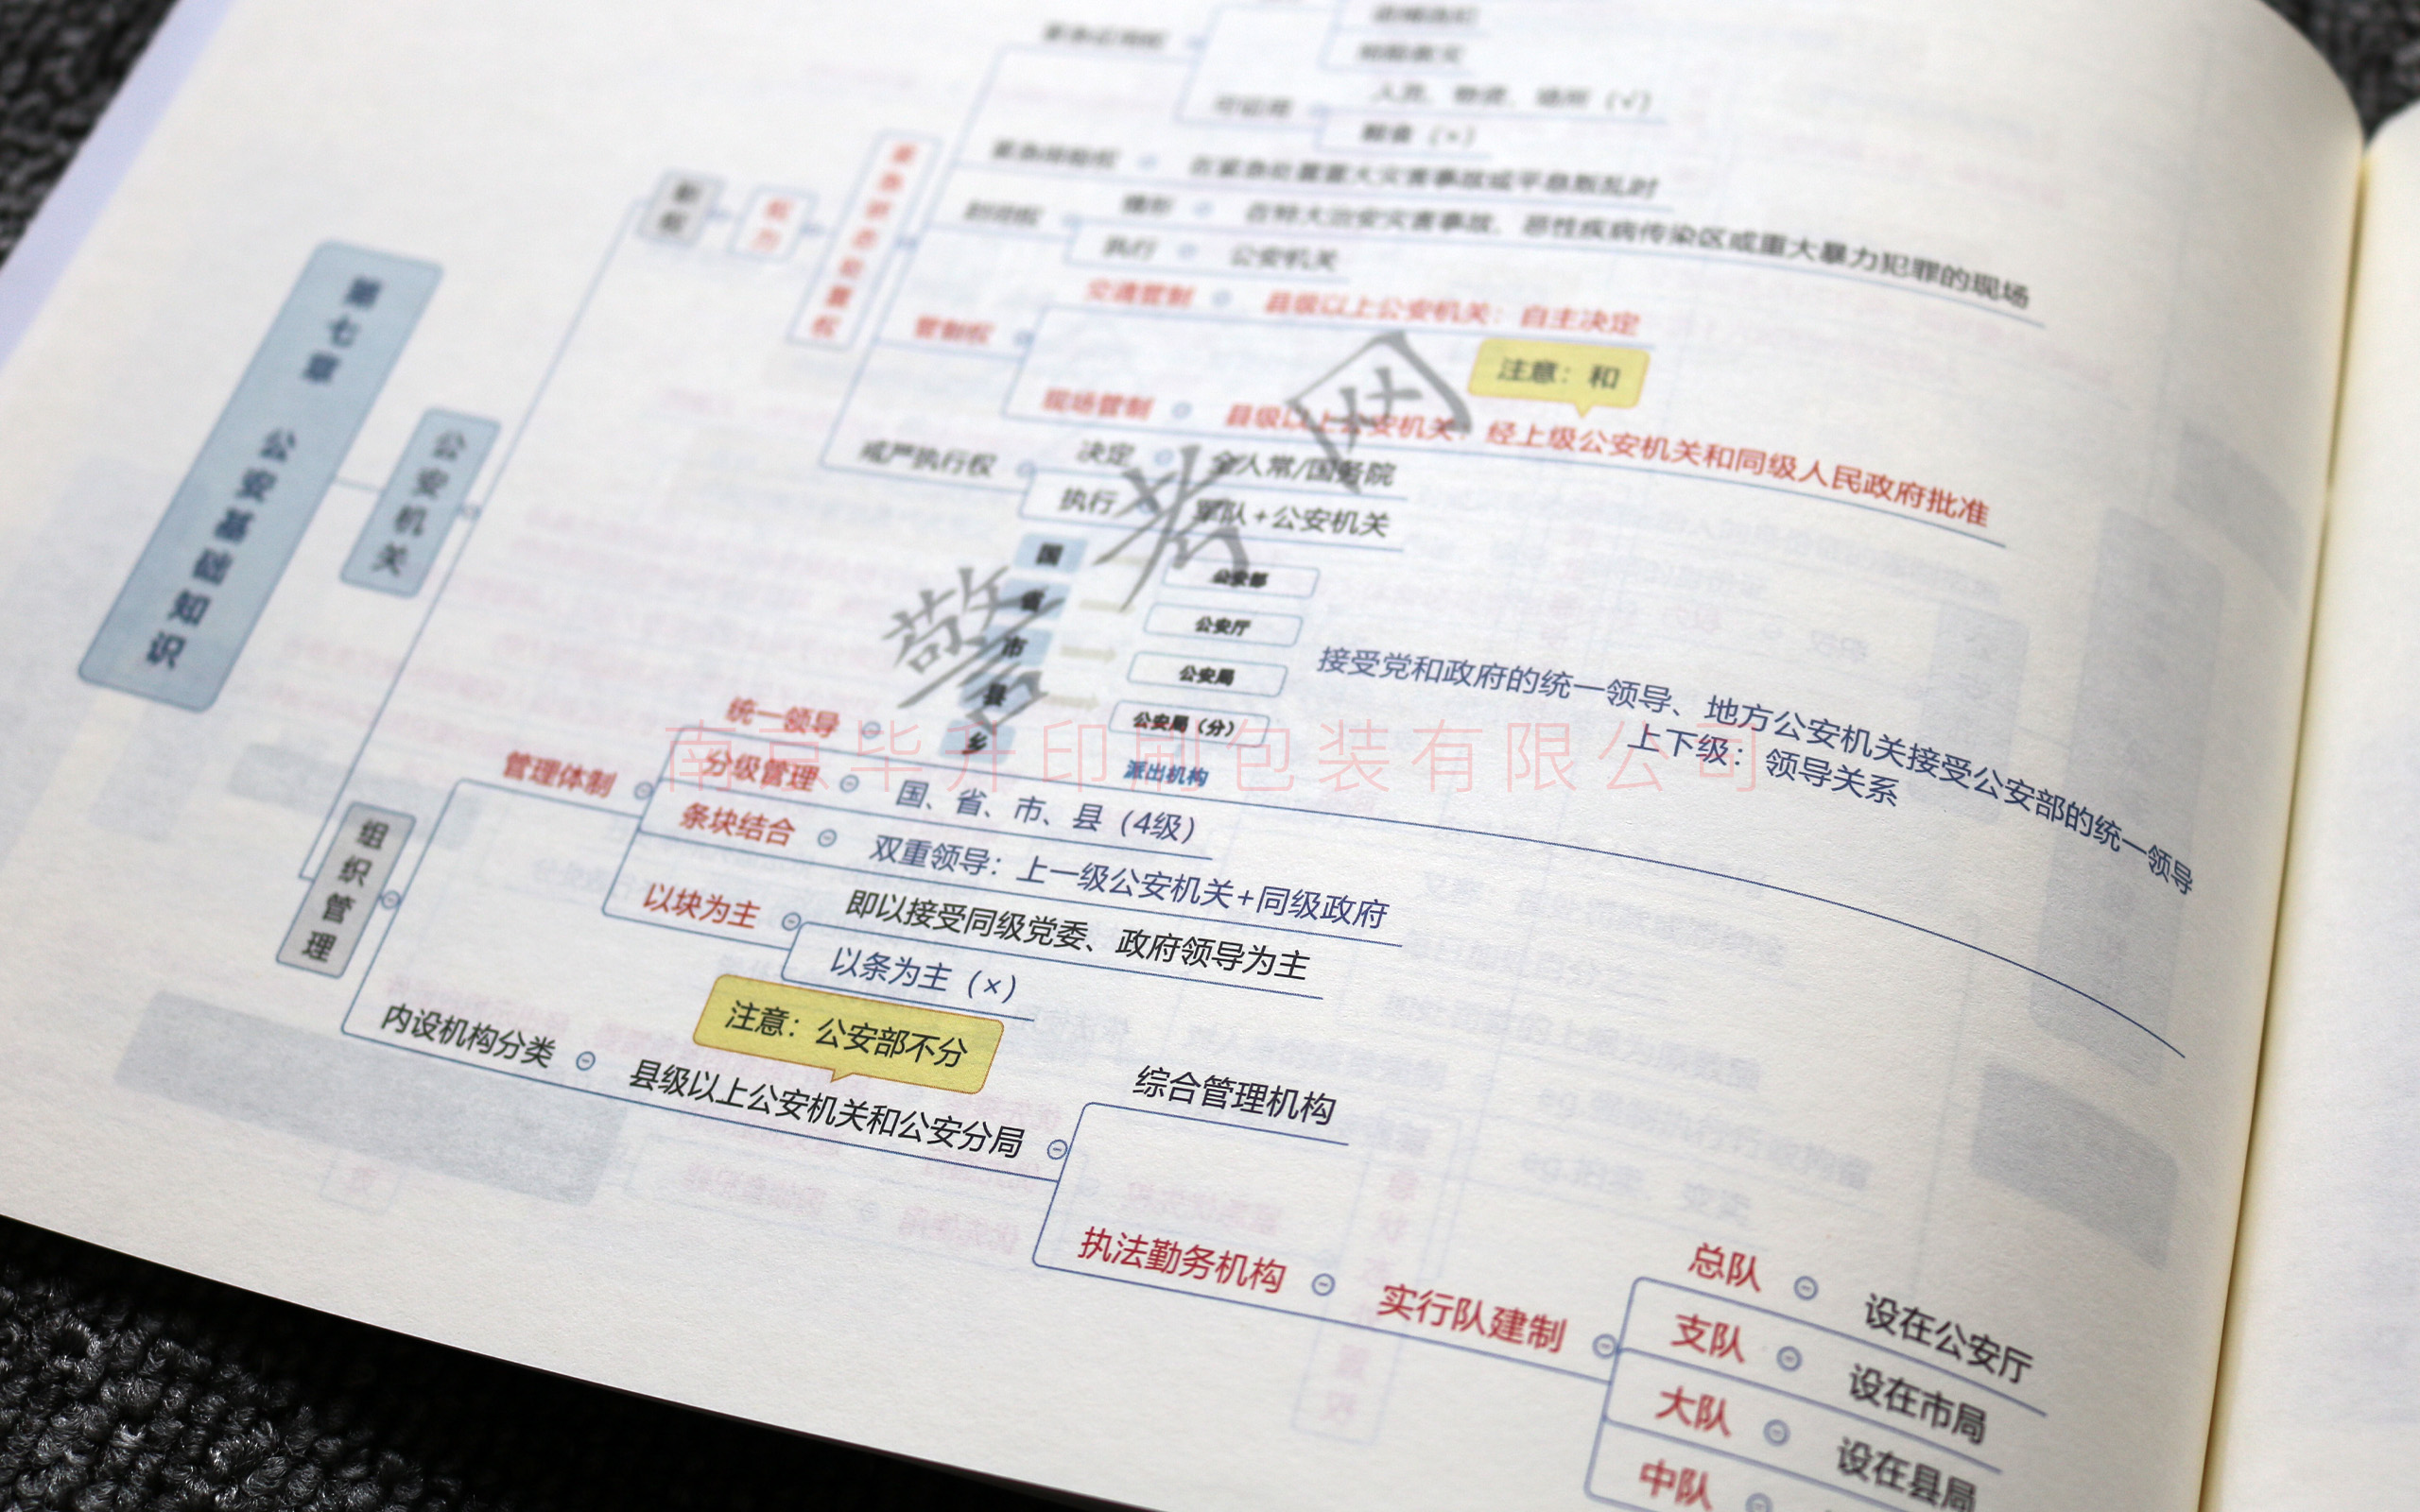 人员、物资、场所（√）
粮食（×）
在紧急处置重大灾害事故或平息叛乱时
在特大治安灾害事故、恶性疾病传染区或重大暴力犯罪的现场
执行
公安机关
权力
交通管制
县级以上公安机关：自主决定
管制权
注意：和
现场管制
县级以上公安机关，经上级公安机关和同级人民政府批准
戒严执行权
决定
全人常/国务院
执行
军队+公安机关
第七章 公安基础知识
公安机关
国
公安部
省
公安厅
市
公安局
县
公安局（分）
乡
派出机构
接受党和政府的统一领导、地方公安机关接受公安部的统一领导
上下级：领导关系
警考网
南京毕升印刷包装有限公司
组织管理
管理体制
统一领导
分级管理
国、省、市、县（4级）
条块结合
双重领导：上一级公安机关+同级政府
以块为主
即以接受同级党委、政府领导为主
以条为主（×）
注意：公安部不分
内设机构分类
县级以上公安机关和公安分局
综合管理机构
执法勤务机构
实行队建制
总队
设在公安厅
支队
设在市局
大队
设在县局
中队